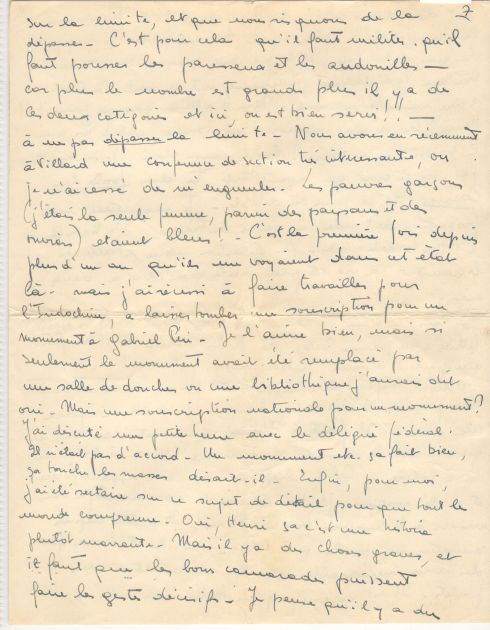 7
sur la limite, et que nous risquons de la
dépasser - C'est pour cela qu'il faut militer. qu'il
faut pousser les paresseux et les andouilles —
car plus le nombre est grand plus il y a de
ces deux catégories et ici, on est bien servi !! —
à ne pas dépasser la limite - Nous avons eu récemment
à Villard une conférence de section très intéressante, où
je n'ai cessé de m'engueuler. Les pauvres garçons
(j'étais la seule femme, parmi des paysans et des
ouvriers) étaient bleus ! - C'est la première fois depuis
plus d'un an qu'ils me voyaient dans cet état
là - mais j'ai réussi à faire travailler pour
l'Indochine, a laisser tomber une souscription pour un
monument à Gabriel Péri - Je l'aime bien, mais si
seulement le monument avait été remplacé par
une salle de douches ou une bibliothèque j'aurais dit
oui - Mais une souscription nationale pour un monument ?
J'ai discuté une petite heure avec le délégué fédéral.
Il n'était pas d'accord - Un monument etc. ça fait bien,
ça touche les masses disait-il - Enfin, pour moi,
j'ai été sectaire sur ce sujet de détail pour que tout le
monde comprenne - Oui, Henri ça c'est une histoire
plutôt marrante - Mais il y a des choses graves, et
il faut que les bons camarades puissent
faire les gestes décisifs - Je pense qu'il y a du